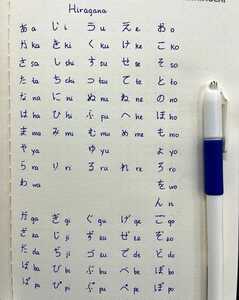 Hiragana
あ a い i う u え e お o
か ka き ki く ku け ke こ ko
さ sa し shi す su せ se そ so
た ta ち chi つ tsu て te と to
な na に ni ぬ nu ね ne の no
は ha ひ hi ふ fu へ he ほ ho
ま ma み mi む mu め me も mo
や ya ゆ yu よ yo
ら ra り ri る ru れ re ろ ro
わ wa を wo
ん n
が ga ぎ gi ぐ gu げ ge ご go
ざ za じ ji ず zu ぜ ze ぞ zo
だ da ぢ ji づ zu で de ど do
ば ba び bi ぶ bu べ be ぼ bo
ぱ pa ぴ pi ぷ pu ぺ pe ぽ po